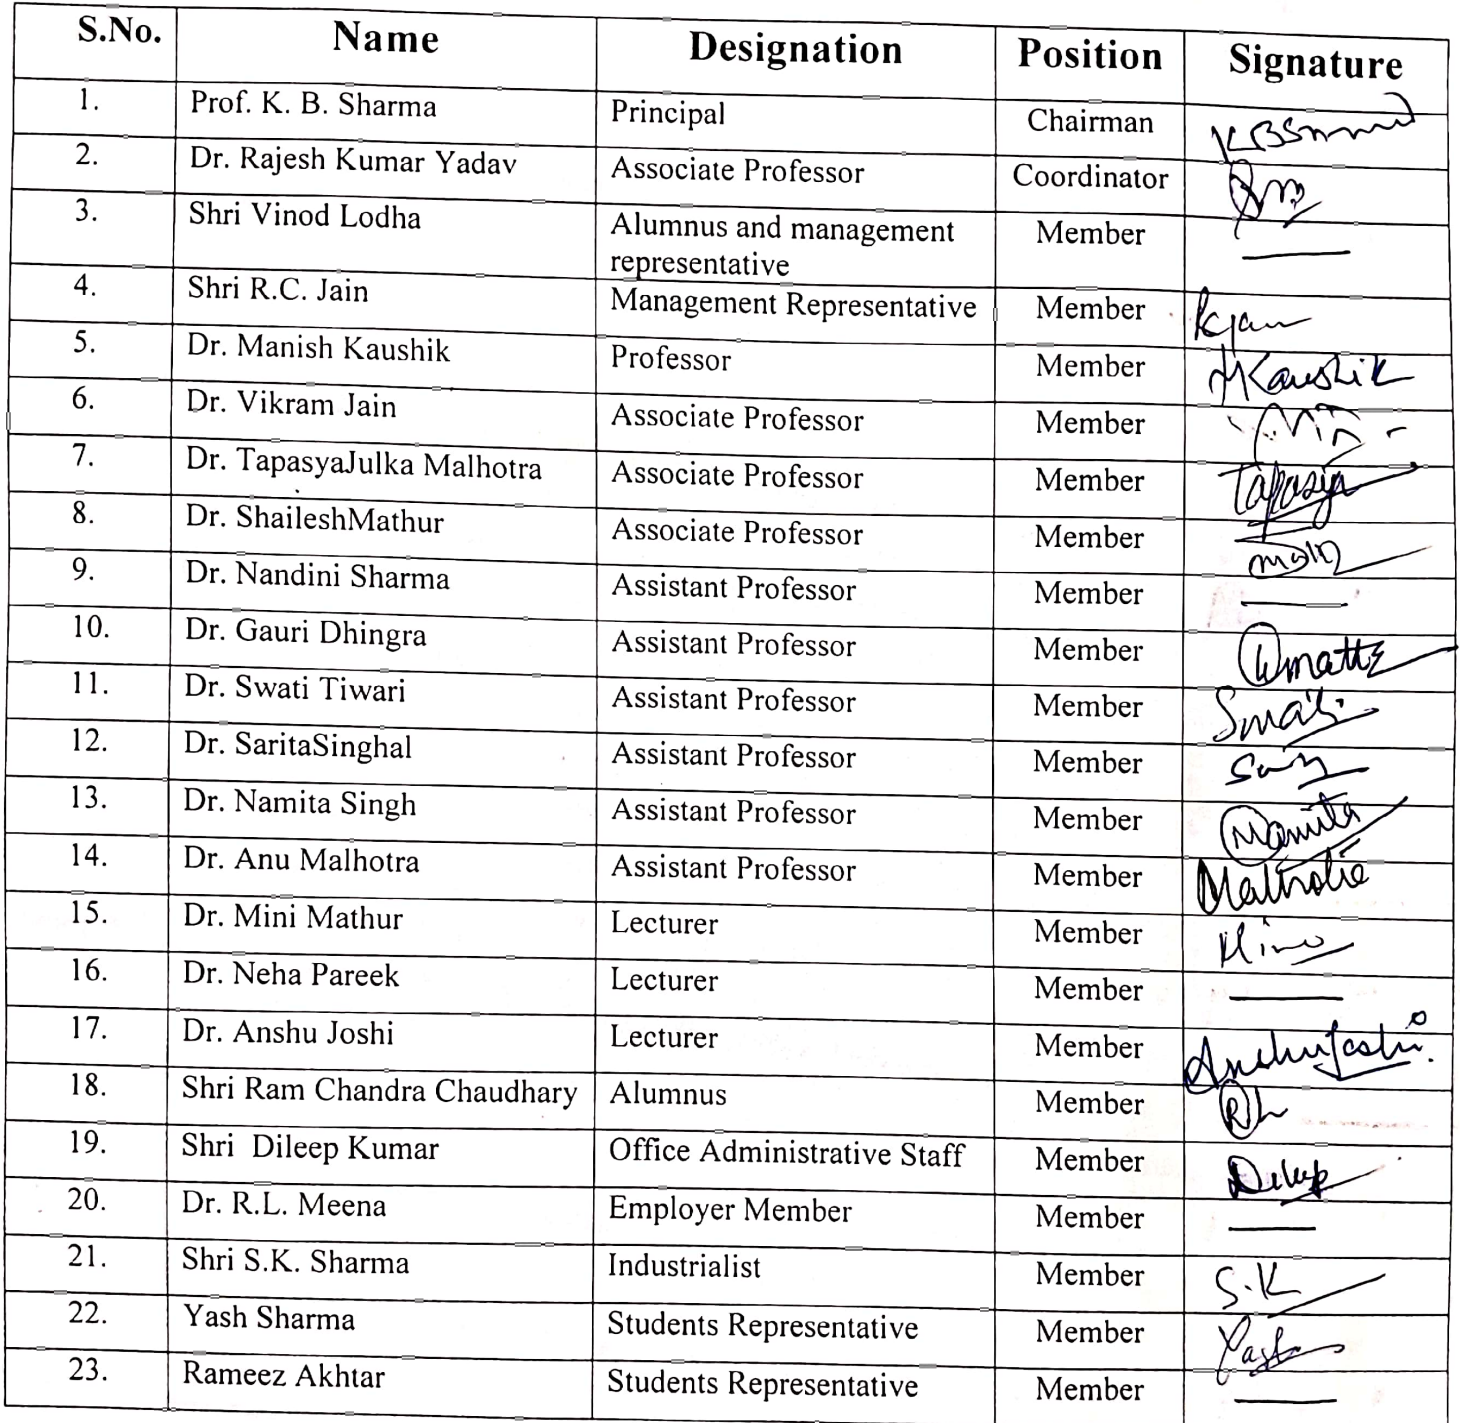 S.No. Name Designation Position Signature
1. Prof. K. B. Sharma Principal Chairman KBSharma
2. Dr. Rajesh Kumar Yadav Associate Professor Coordinator
3. Shri Vinod Lodha Alumnus and management
representative Member —
4. Shri R.C. Jain Management Representative Member
5. Dr. Manish Kaushik Professor Member MKaushik
6. Dr. Vikram Jain Associate Professor Member
7. Dr. TapasyaJulka Malhotra Associate Professor Member Tapasya
8. Dr. ShaileshMathur Associate Professor Member
9. Dr. Nandini Sharma Assistant Professor Member —
10. Dr. Gauri Dhingra Assistant Professor Member
11. Dr. Swati Tiwari Assistant Professor Member Swati
12. Dr. SaritaSinghal Assistant Professor Member
13. Dr. Namita Singh Assistant Professor Member Namita
14. Dr. Anu Malhotra Assistant Professor Member Malhotra
15. Dr. Mini Mathur Lecturer Member Mini
16. Dr. Neha Pareek Lecturer Member —
17. Dr. Anshu Joshi Lecturer Member Anshu Joshi.
18. Shri Ram Chandra Chaudhary Alumnus Member
19. Shri Dileep Kumar Office Administrative Staff Member Dileep
20. Dr. R.L. Meena Employer Member Member —
21. Shri S.K. Sharma Industrialist Member S.K
22. Yash Sharma Students Representative Member Yash
23. Rameez Akhtar Students Representative Member —